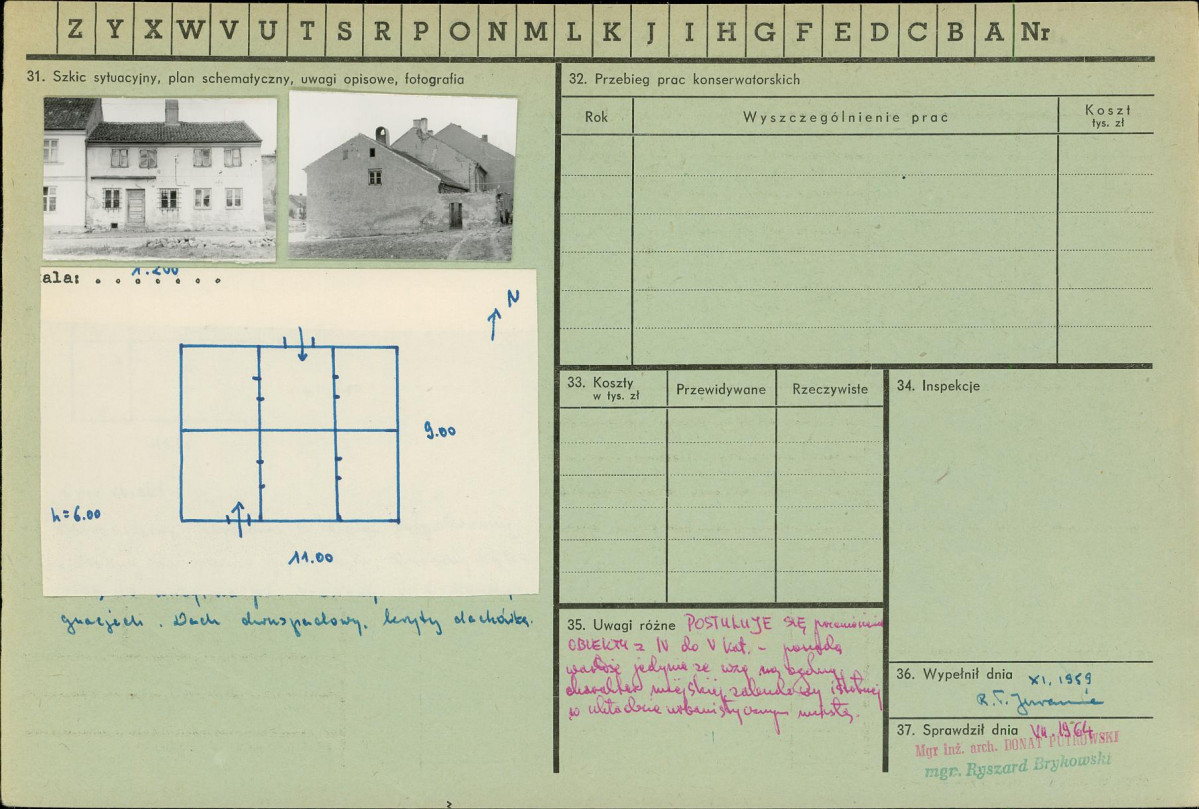 Z Y X W V U T S R P O N M L K J I H G F E D C B A Nr
31. Szkic sytuacyjny, plan schematyczny, uwagi opisowe, fotografia
ala: . . . . . . .
1:200
N
9.00
h=6.00
11.00
gnacjach. Dach dwuspadowy, kryty dachówką.
32. Przebieg prac konserwatorskich
Rok
Wyszczególnienie prac
Koszt
tys. zł
33. Koszty
w tys. zł
Przewidywane
Rzeczywiste
34. Inspekcje
35. Uwagi różne POSTULUJE SIĘ przeniesienie
OBIEKTU z IV do V kat. – posiada
wartość jedynie ze wzg. na ogólny
charakter miejskiej zabudowy istotnej
w układzie urbanistycznym miasta.
36. Wypełnił dnia XI. 1959
37. Sprawdził dnia VII. 1964
Mgr inż. arch. DONAT PUTKOWSKI
mgr. Ryszard Brykowski